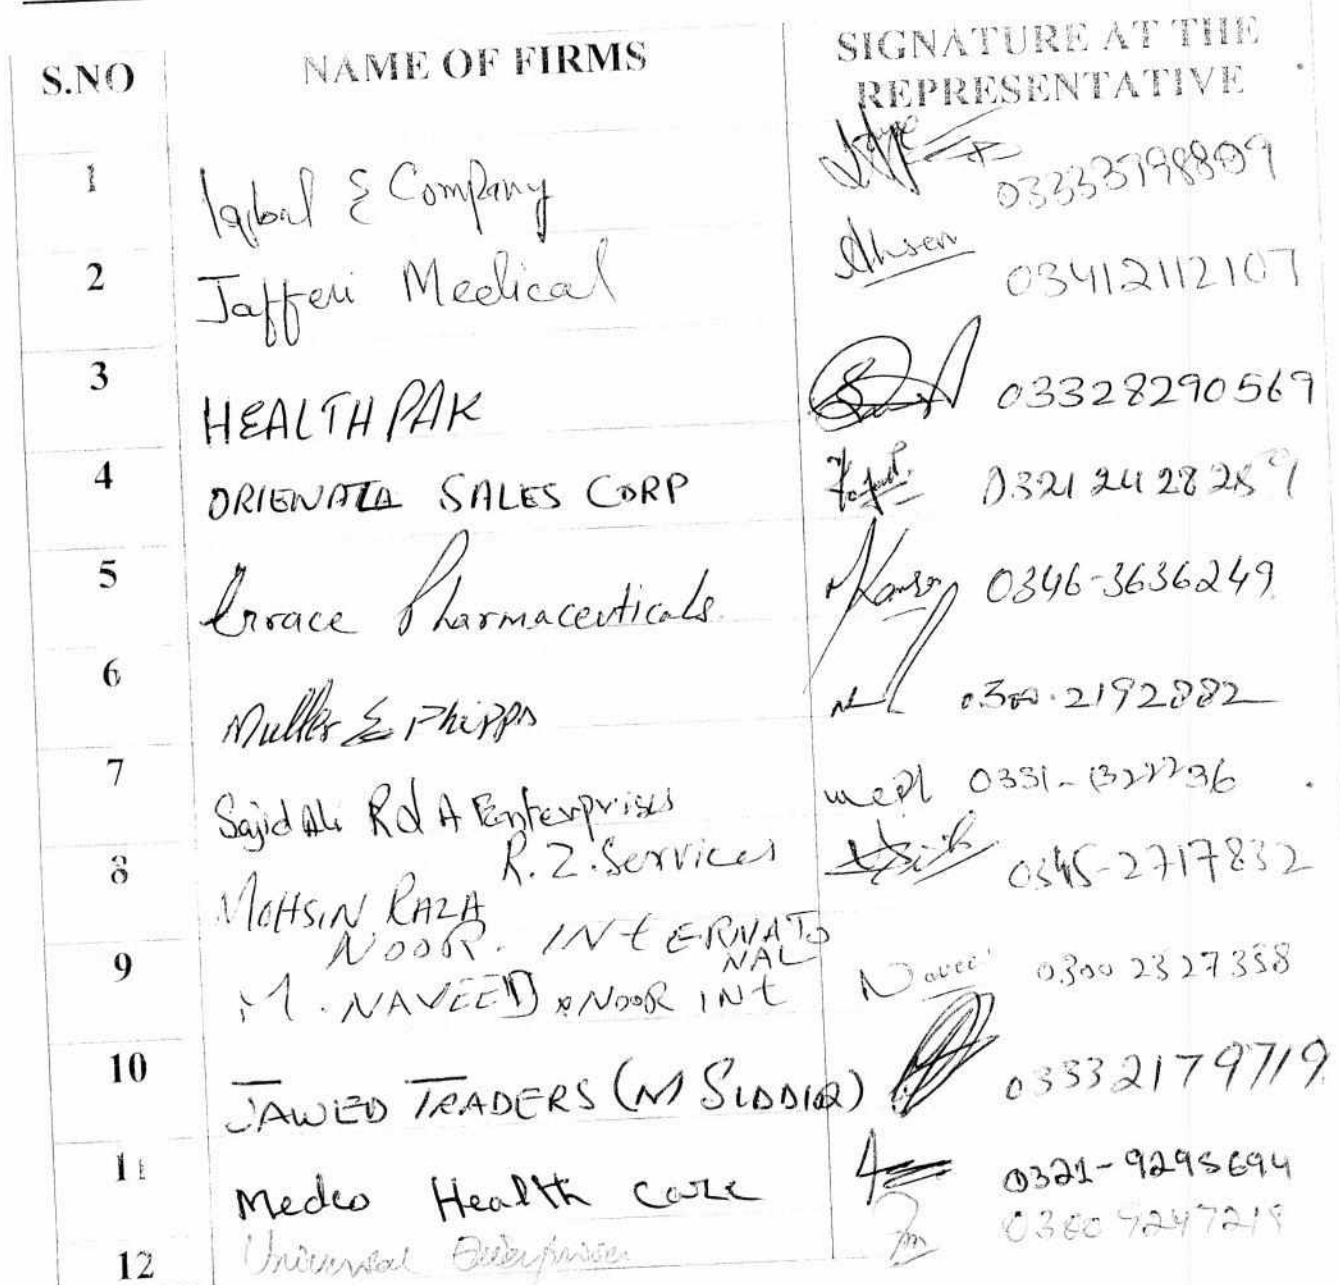 S.NO NAME OF FIRMS SIGNATURE AT THE
REPRESENTATIVE
1 Iqbal & Company 03333798809
2 Jafferi Medical Ahsen 03412112107
3 HEALTH PAK 03328290569
4 ORIENATA SALES CORP 0321 242 82
5 Grace Pharmaceuticals. Kamran 0346-3636249
6 Muller & Phipps 0300-2192882
7 Sajid Ali R d A Enterprises 0331-
R.Z. Services
8 MOHSIN RAZA 0345-2717832
NOOR. INTERNATO
NAL
9 M. NAVEED NOOR INt Naveed 0300 2327358
10 JAWED TRADERS (M SIDDIQ) 03332179719
11 Medeo Health care 0321-9295694
12 Universal Enterprises 0300 9247219